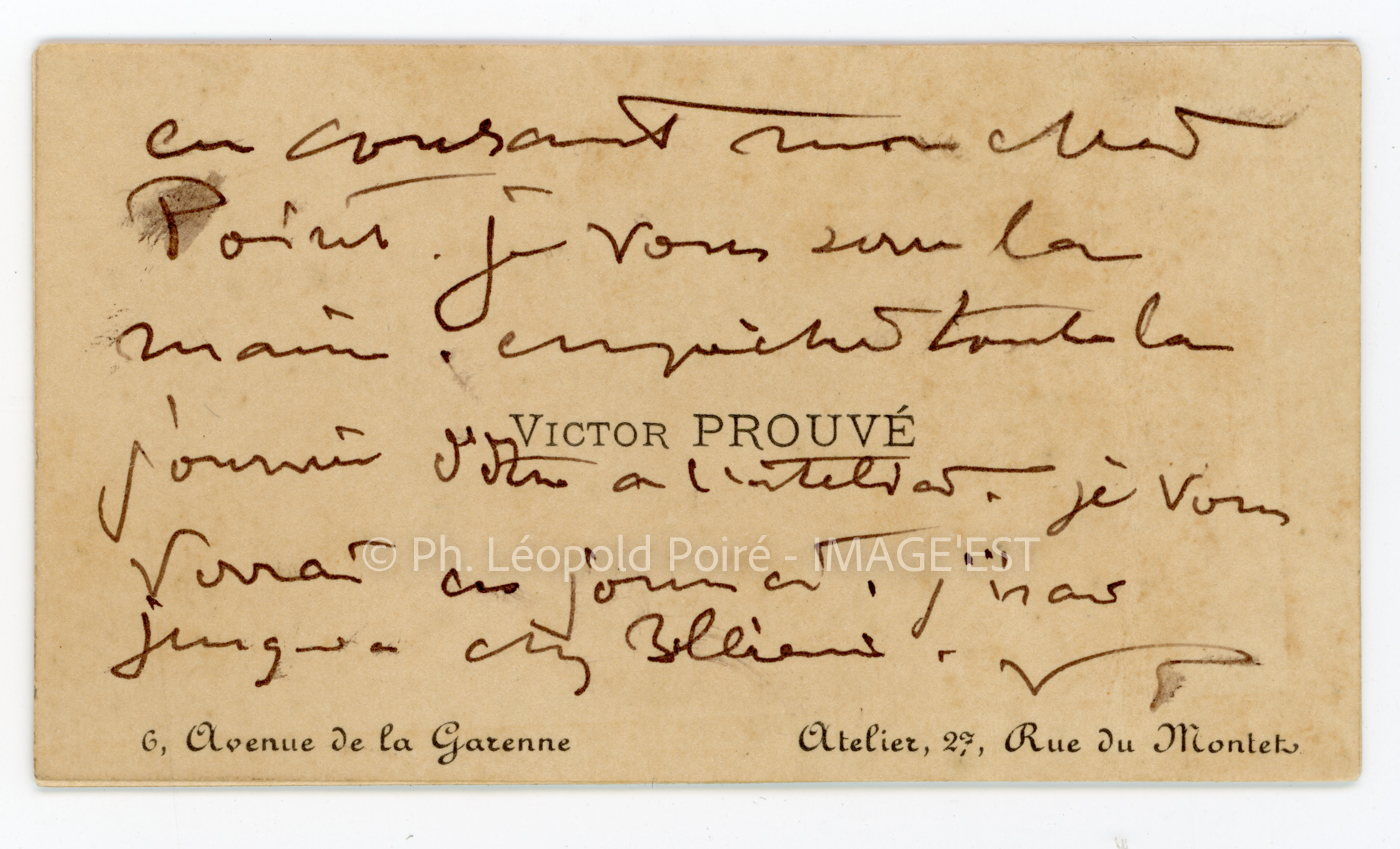 en courant mon cher
Poiré. je vous serre la
main. empêché toute la
journée d'être a l'atelier. je vous
VICTOR PROUVÉ
verrai ces jours ci. j'irai
© Ph. Léopold Poiré - IMAGE'EST
jusqu'a chez
VP
6, Avenue de la Garenne
Atelier, 27, Rue du Montet